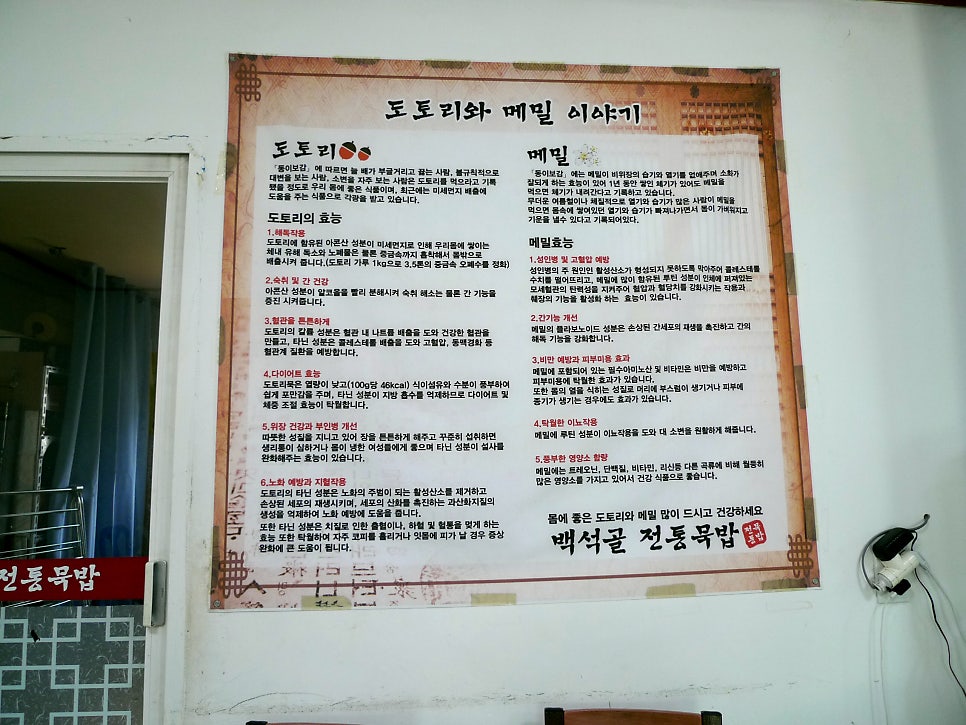 도토리와 메밀 이야기
도토리
「동이보감」에 따르면 늘 배가 부글거리고 끓는 사람, 불규칙적으로
대변을 보는 사람, 소변을 자주 보는 사람은 도토리를 먹으라고 기록
했을 정도로 우리 몸에 좋은 식품이며, 최근에는 미세먼지 배출에
도움을 주는 식품으로 각광을 받고 있습니다.
도토리의 효능
1.해독작용
도토리에 함유된 아콘산 성분이 미세먼지로 인해 우리몸에 쌓이는
체내 유해 독소와 노폐물은 물론 중금속까지 흡착해서 몸밖으로
배출시켜 줍니다.(도토리 가루 1kg으로 3.5톤의 중금속 오폐수를 정화)
2.숙취 및 간 건강
아콘산 성분이 알코올을 빨리 분해시켜 숙취 해소는 물론 간 기능을
증진 시켜줍니다.
3.혈관을 튼튼하게
도토리의 칼륨 성분은 혈관 내 나트륨 배출을 도와 건강한 혈관을
만들고, 타닌 성분은 콜레스테롤 배출을 도와 고혈압, 동맥경화 등
혈관계 질환을 예방합니다.
4.다이어트 효능
도토리묵은 열량이 낮고(100g당 46kcal) 식이섬유와 수분이 풍부하여
쉽게 포만감을 주며, 타닌 성분이 지방 흡수를 억제하므로 다이어트 및
체중 조절 효능이 탁월합니다.
5.위장 건강과 부인병 개선
따뜻한 성질을 지니고 있어 장을 튼튼하게 해주고 꾸준히 섭취하면
생리통이 심하거나 몸이 냉한 여성들에게 좋으며 타닌 성분이 설사를
완화해주는 효능이 있습니다.
6.노화 예방과 지혈작용
도토리의 타닌 성분은 노화의 주범이 되는 활성산소를 제거하고
손상된 세포의 재생시키며, 세포의 산화를 촉진하는 과산화지질의
생성을 억제하여 노화 예방에 도움을 줍니다.
또한 타닌 성분은 치질로 인한 출혈이나, 하혈 및 혈통을 멎게 하는
효능 또한 탁월하여 자주 코피를 흘리거나 잇몸에 피가 날 경우 증상
완화에 큰 도움이 됩니다.
메밀
「동이보감」에는 메밀이 비위장의 습기와 열기를 없애주며 소화가
잘되게 하는 효능이 있어 1년 동안 쌓인 체기가 있어도 메밀을
먹으면 체기가 내려간다고 기록하고 있습니다.
무더운 여름철이나 체질적으로 열기와 습기가 많은 사람이 메밀을
먹으면 몸속에 쌓여있던 열기와 습기가 빠져나가면서 몸이 가벼워지고
기운을 낼수 있다고 기록되어있다.
메밀효능
1.성인병 및 고혈압 예방
성인병의 주 원인인 활성산소가 형성되지 못하도록 막아주어 콜레스테롤
수치를 떨어뜨리고, 메밀에 많이 함유된 루틴 성분이 인체에 퍼져있는
모세혈관의 탄력성을 지켜주어 혈압과 혈당치를 강화시키는 작용과
췌장의 기능을 활성화 하는 효능이 있습니다.
2.간기능 개선
메밀의 플라보노이드 성분은 손상된 간세포의 재생을 촉진하고 간의
해독 기능을 강화합니다.
3.비만 예방과 피부미용 효과
메밀에 포함되어 있는 필수아미노산 및 비타민은 비만을 예방하고
피부미용에 탁월한 효과가 있습니다.
또한 몸의 열을 식히는 성질로 머리에 부스럼이 생기거나 피부에
종기가 생기는 경우에도 효과가 있습니다.
4.탁월한 이뇨작용
메밀에 루틴 성분이 이뇨작용을 도와 대 소변을 원활하게 해줍니다.
5.풍부한 영양소 함량
메밀에는 트레오닌, 단백질, 비타민, 리신등 다른 곡류에 비해 월등히
많은 영양소를 가지고 있어서 건강 식품으로 좋습니다.
몸에 좋은 도토리와 메밀 많이 드시고 건강하세요
백석골 전통묵밥
전통묵밥